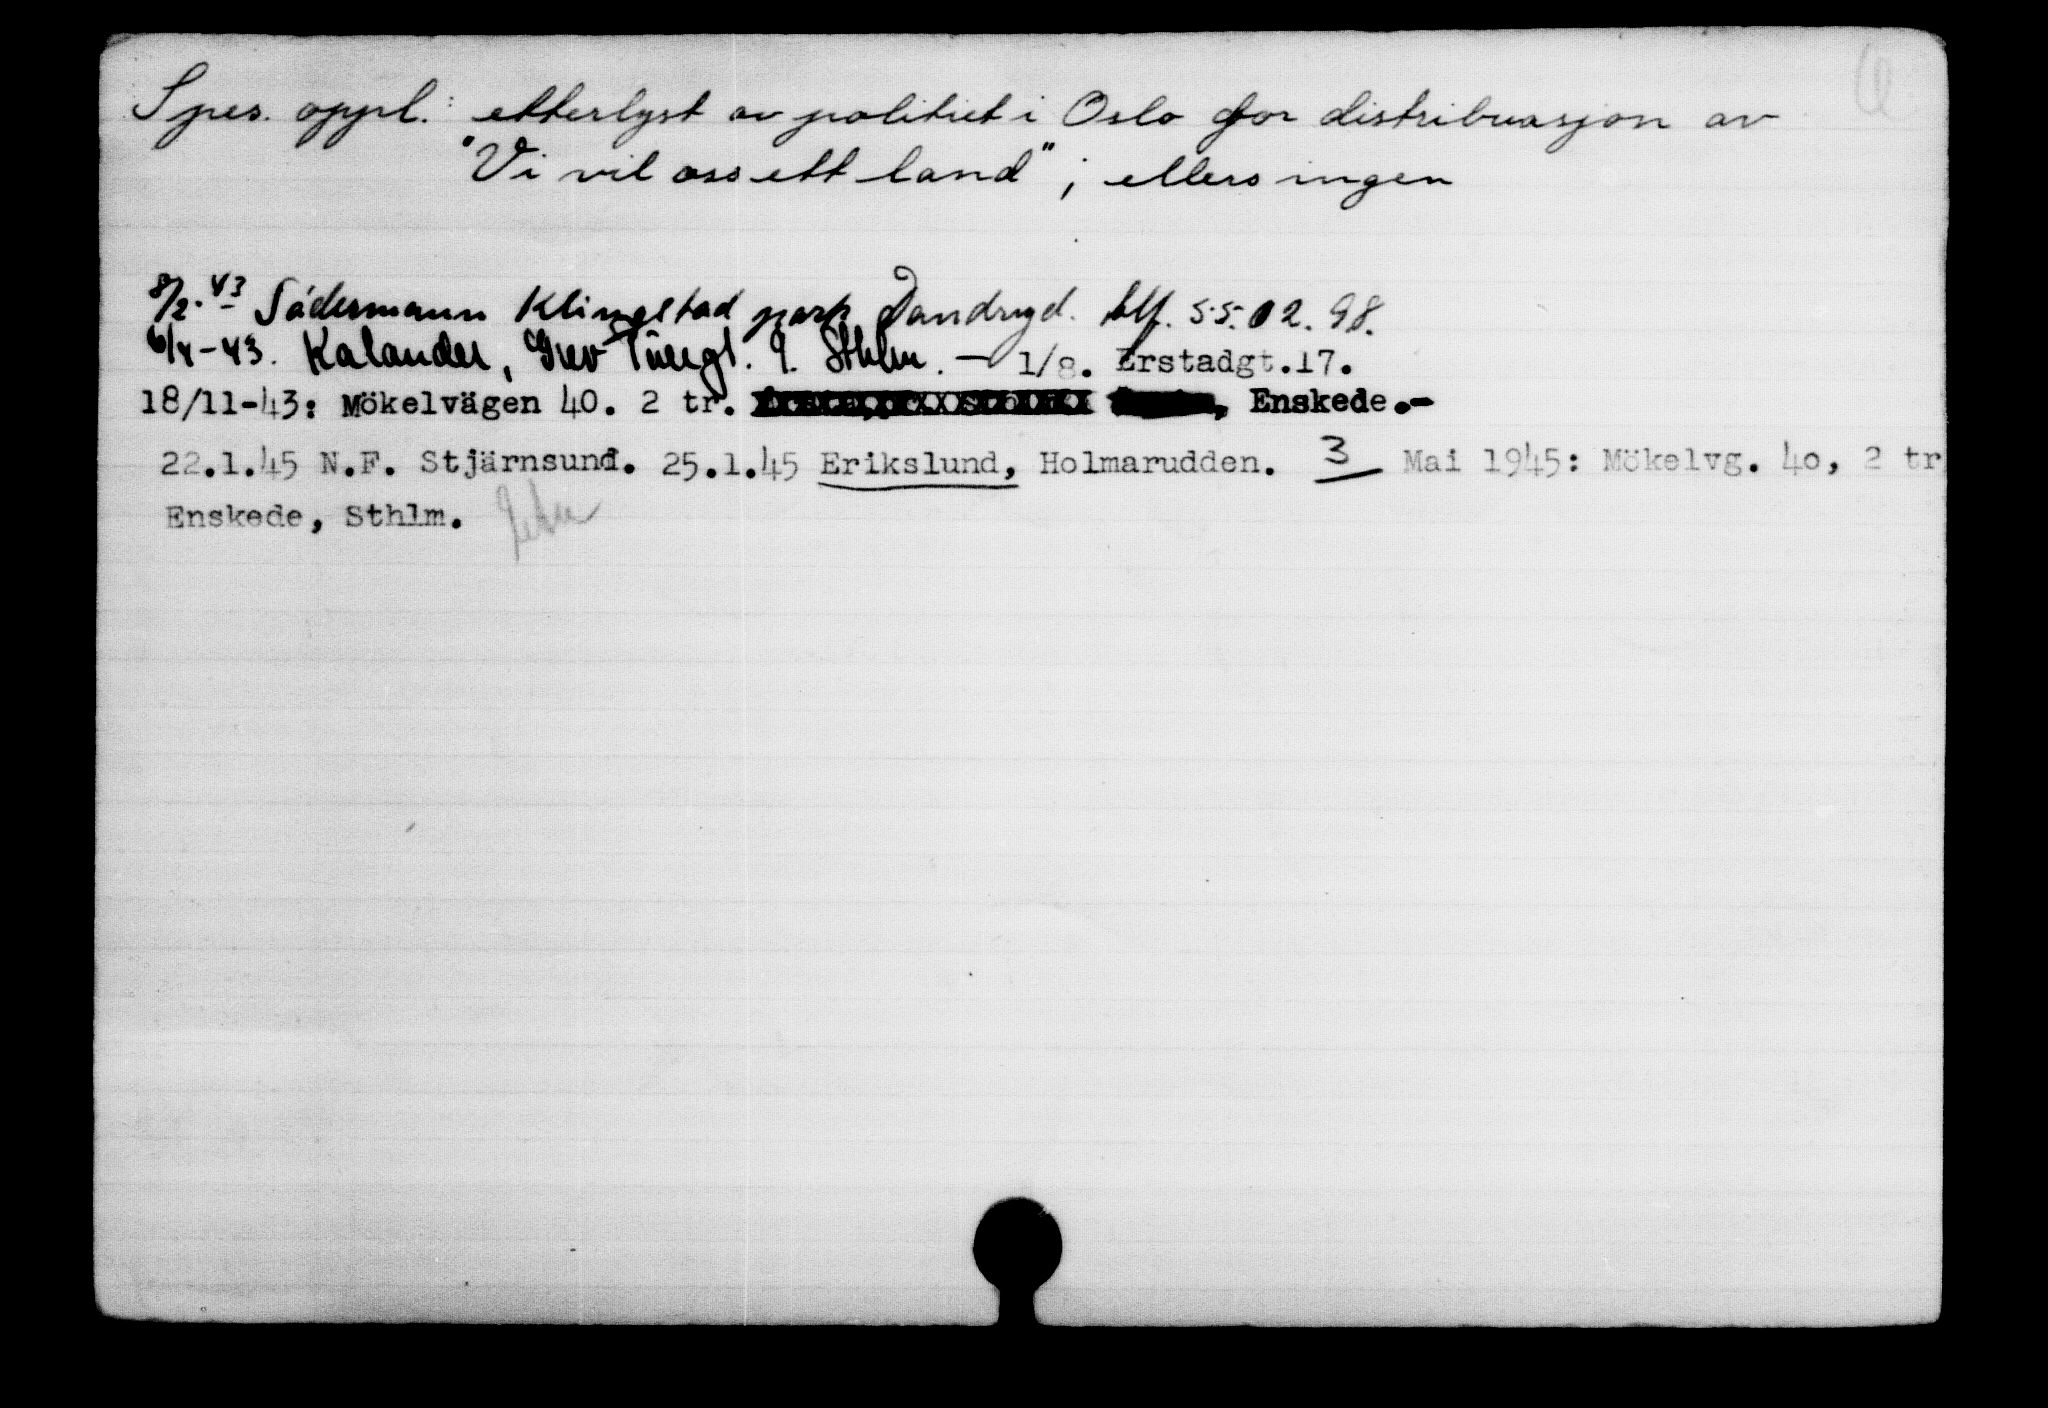 Spes. oppl.: etterlyst av politiet i Oslo for distribuasjon av
"Vi vil oss ett land"; ellers ingen
8/2.43 Södermann Klingstad park Dandryd. tlf. 55.02.98.
6/4-43. Kalander, Grev Turegt. 9. Sthlm. — 1/8. Erstadgt.17.
18/11-43: Mökelvägen 40. 2 tr. Enskede.-
22.1.45 N.F. Stjärnsund. 25.1.45 Erikslund, Holmarudden. 3 Mai 1945: Mökelvg. 40, 2 tr
Enskede, Sthlm.